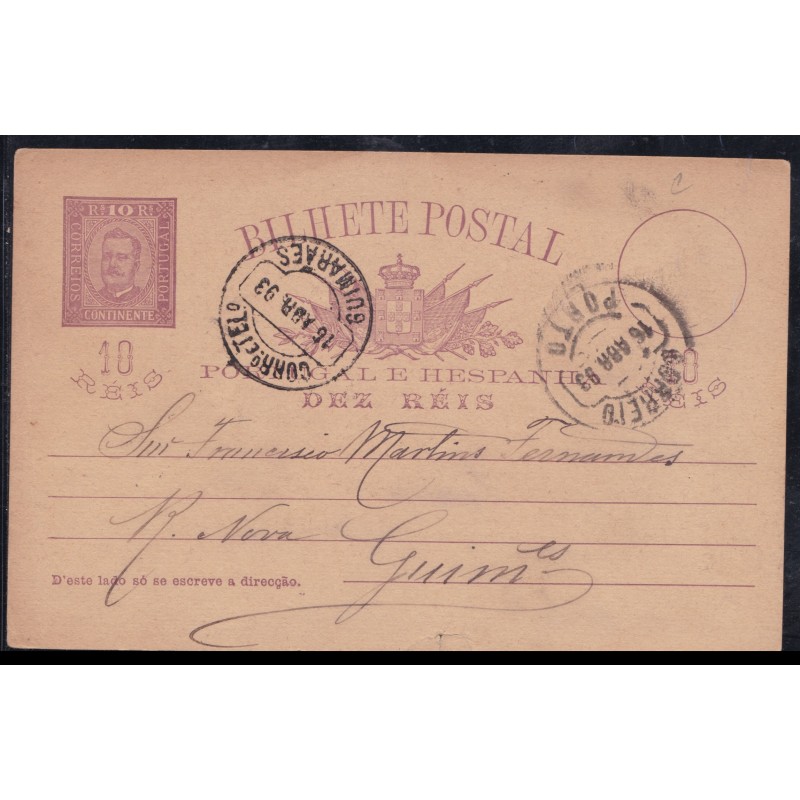 Rs 10 Rs
CORREIOS
PORTUGAL
CONTINENTE
10
RÉIS
BILHETE POSTAL
PORTUGAL E HESPANHA
DEZ RÉIS
RÉIS
GUIMARÃES
16 ABR. 93
CORRº E TELº
PORTO
16 ABR 93
CORREIO
C
Snr Francisco Martins Fernandes
R. Nova
Guimes
D'este lado só se escreve a direcção.